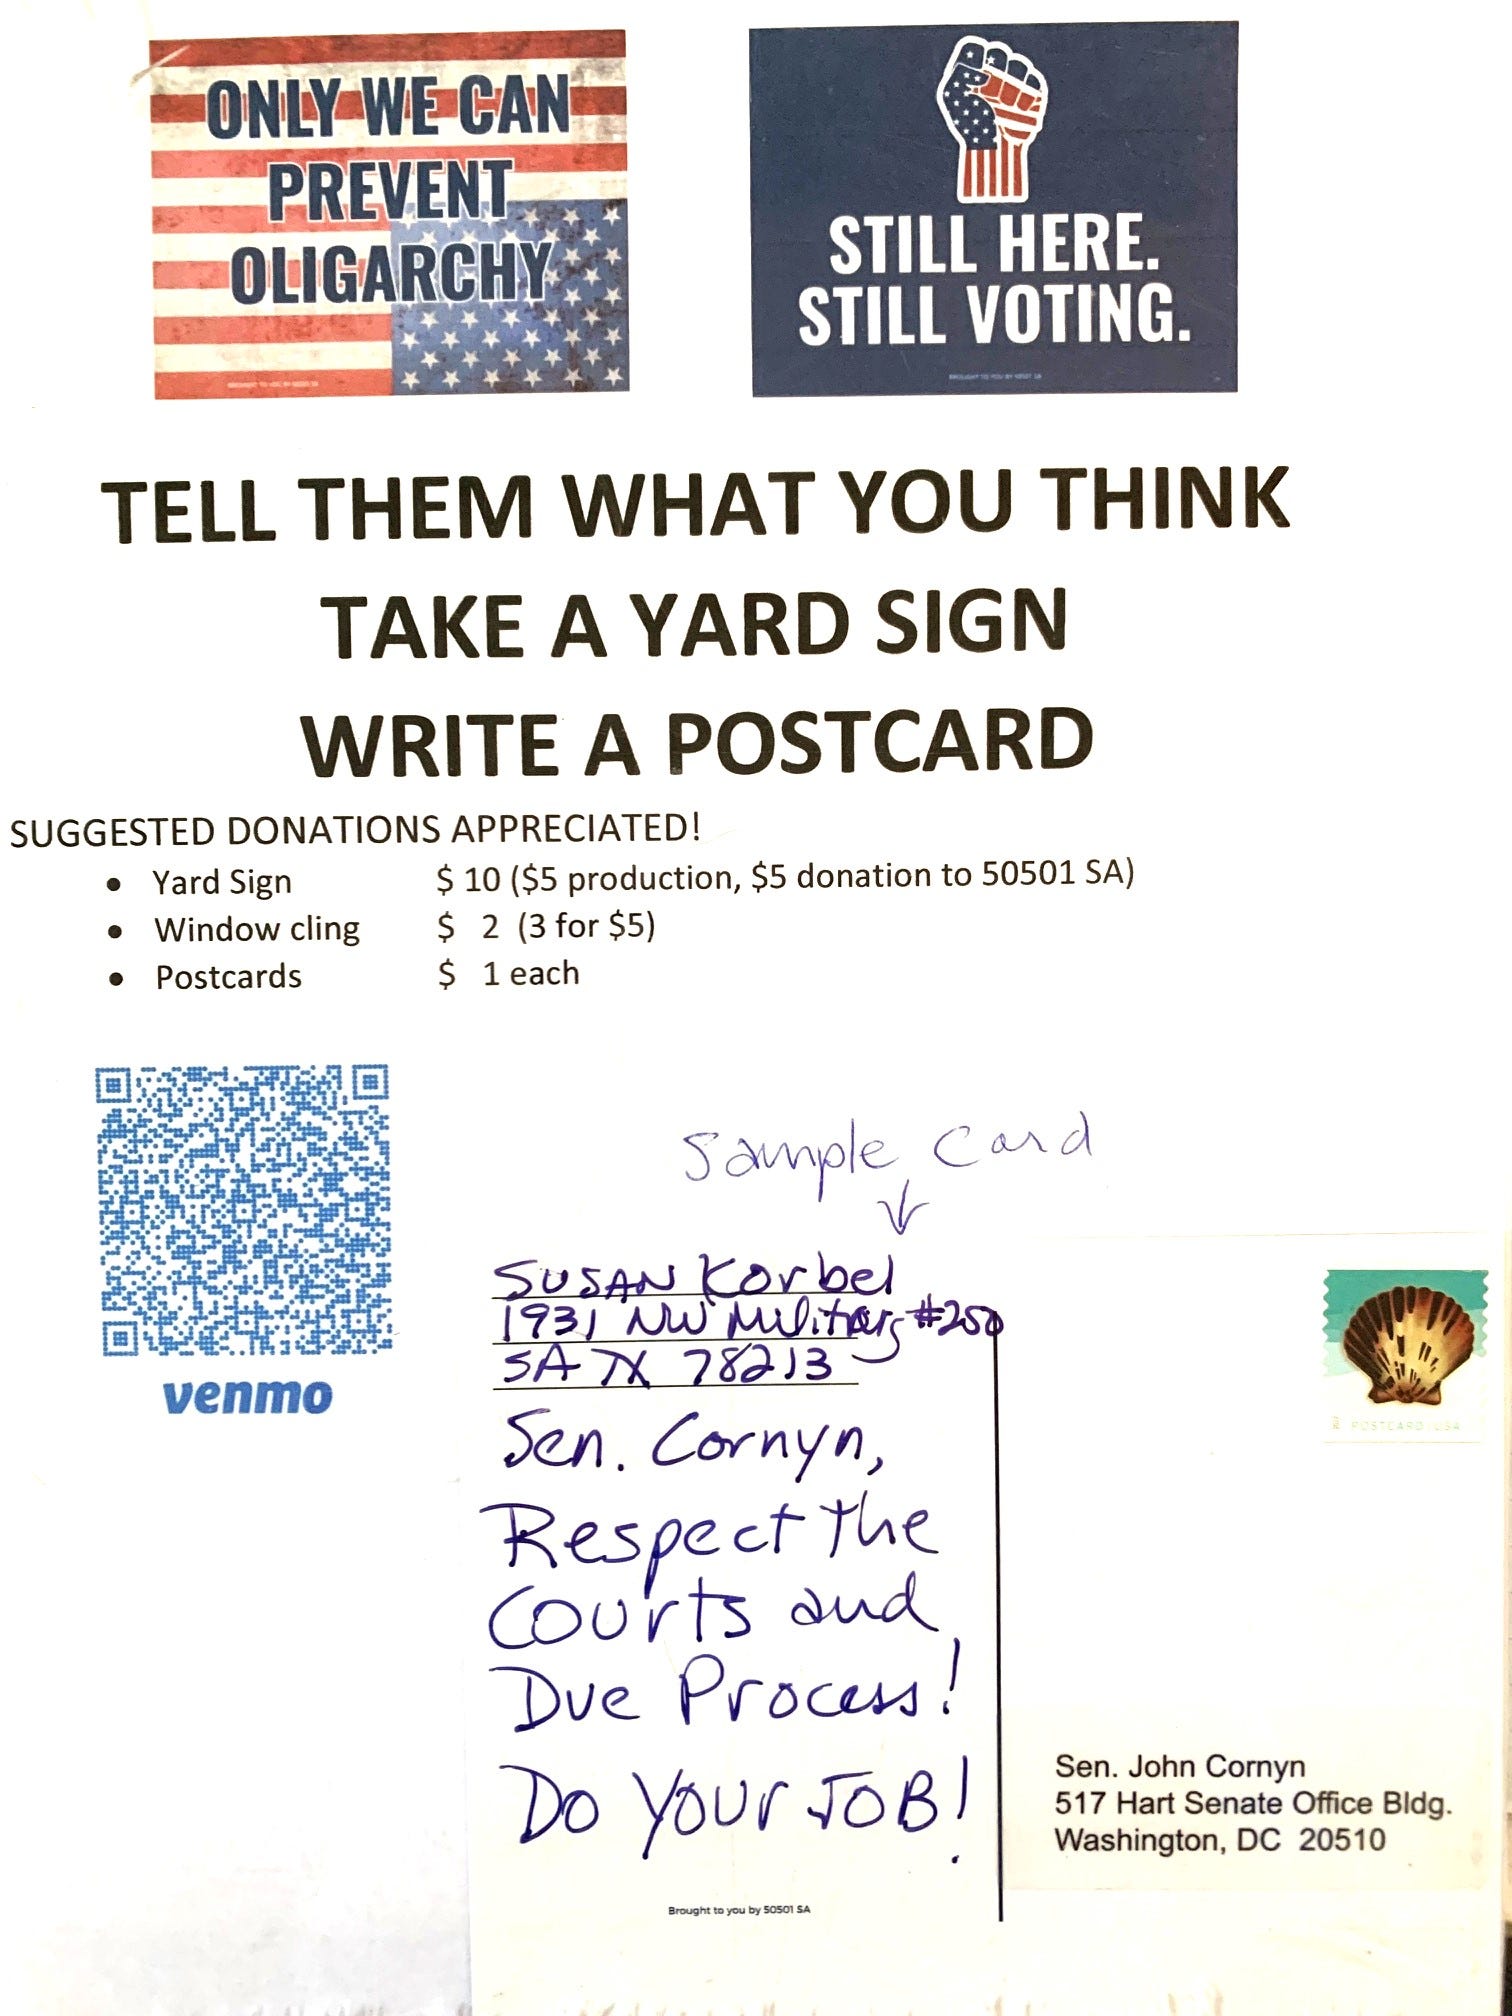 ONLY WE CAN
PREVENT
OLIGARCHY
BROUGHT TO YOU BY 50501 SA
STILL HERE.
STILL VOTING.
BROUGHT TO YOU BY 50501 SA
TELL THEM WHAT YOU THINK
TAKE A YARD SIGN
WRITE A POSTCARD
SUGGESTED DONATIONS APPRECIATED!
• Yard Sign $ 10 ($5 production, $5 donation to 50501 SA)
• Window cling $ 2 (3 for $5)
• Postcards $ 1 each
venmo
Sample Card
SUSAN Korbel
1931 NW Military #250
SA TX 78213
Sen. Cornyn,
Respect the
Courts and
Due Process!
Do Your JOB!
Brought to you by 50501 SA
POSTCARD USA
Sen. John Cornyn
517 Hart Senate Office Bldg.
Washington, DC 20510